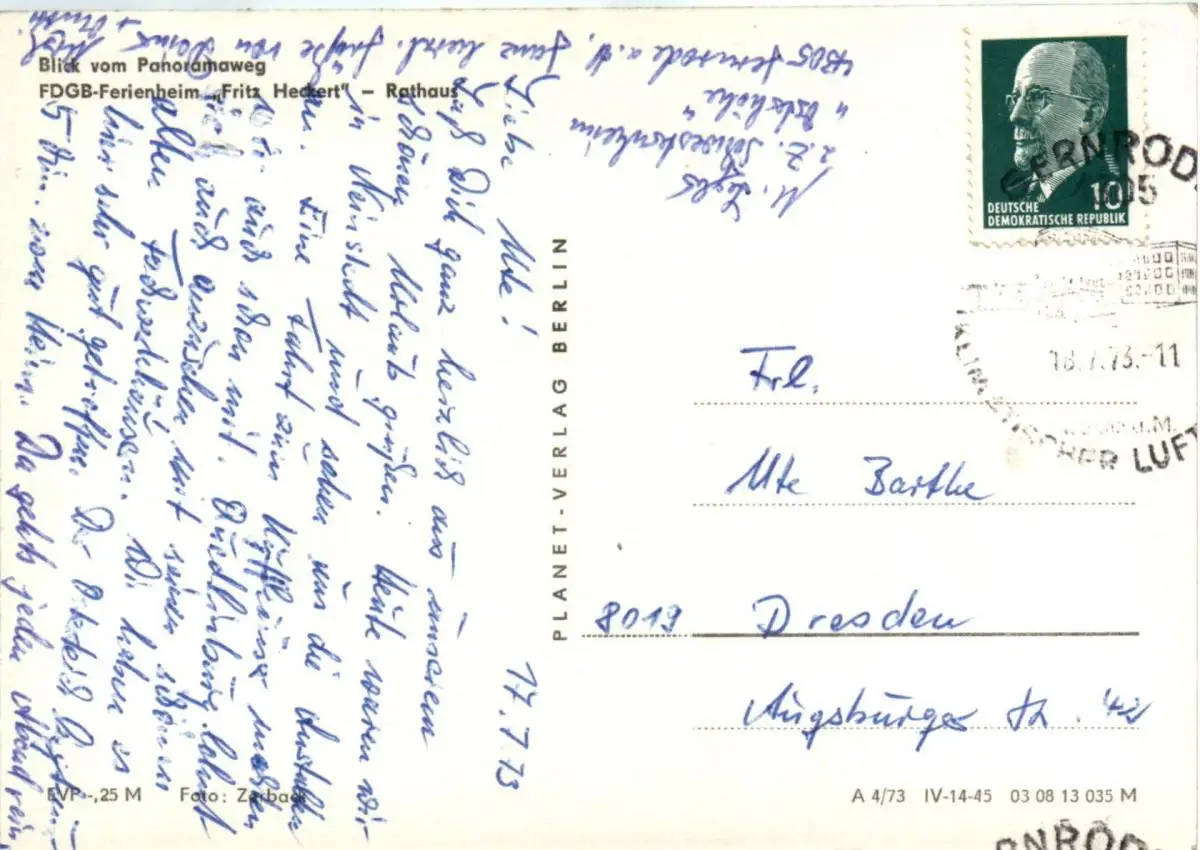 Blick vom Panoramaweg
FDGB-Ferienheim „Fritz Heckert" – Rathaus
17.7.73
Liebe Ute!
Laß Dich ganz herzlich aus unserem
schönen Urlaub grüßen. Heute waren wir
in Neinstedt und sahen uns die Anstalten
an. Eine Fahrt zum Kyffhäuser machten
wir auch schon mit. Quedlinburg lohnt
sich auch anzusehen mit seinen schönen
alten Fachwerkhäusern. Wir haben es
hier sehr gut getroffen. Der Osterteich liegt nur
5 Min. vom Heim. Da gehts jeden Abend rein.
Ganz herzl. Grüße von Deiner
M.
z. Z. Schwesternheim
"
4305 Gernrode a. H.
PLANET-VERLAG BERLIN
DEUTSCHE
DEMOKRATISCHE REPUBLIK
10
GERNROD
4305
18.7.73.-11
KLIMATISCHER LUFT
Frl.
Ute Barthe
8019 Dresden
Augsburger Str. 42
EVP -,25 M Foto: Zerback
A 4/73 IV-14-45 03 08 13 035 M
RNROD